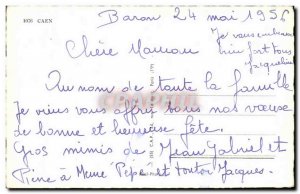 1035 CAEN
Baron 24 mai 1956
Chère Maman
Je vous embrasse
bien fort tous
Jacqueline
Au nom de toute la famille
je viens vous offrir tous nos vœux
de bonne et heureuse fête.
Gros mimis de Jean Gabriel et
Pierre à Meme Pépé et tonton Jacques.